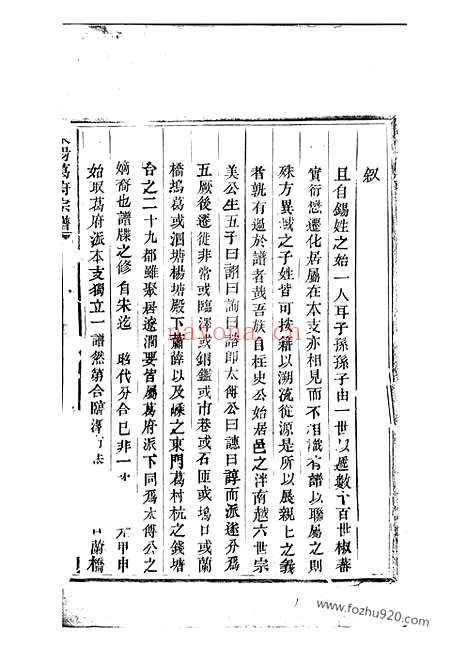 叙
且自錫姓之始一人耳子孫孫子由一世以遞數十百世椒蕃
實衍愆遷化居屬在本支亦相見而不相識有譜以聯屬之則
殊方異域之子姓皆可按籍以溯流從源是所以展親上之義
者孰有過於譜者哉吾族自柱史公始居邑之泮南越六世宗
美公生五子曰詡曰詢曰諦即太傅公曰譓曰諄而派遂分爲
五厥後遷徙非常或臨澤或銅鑑或市巷或石匝或塢曰或蘭
橋塢葛或泗塘楊塘殿下蕭薛以及嵊之東門葛村杭之錢塘
台之二十九都雖聚居遼濶要皆屬葛府派下同爲太傅公之
嫡裔也譜牒之修自宋迄 昭代分合已非一 元甲申
始取葛府派本支獨立一譜然第合臨澤 蘭橋
葛府宗譜
nayona.cn
www.fozhu920.com